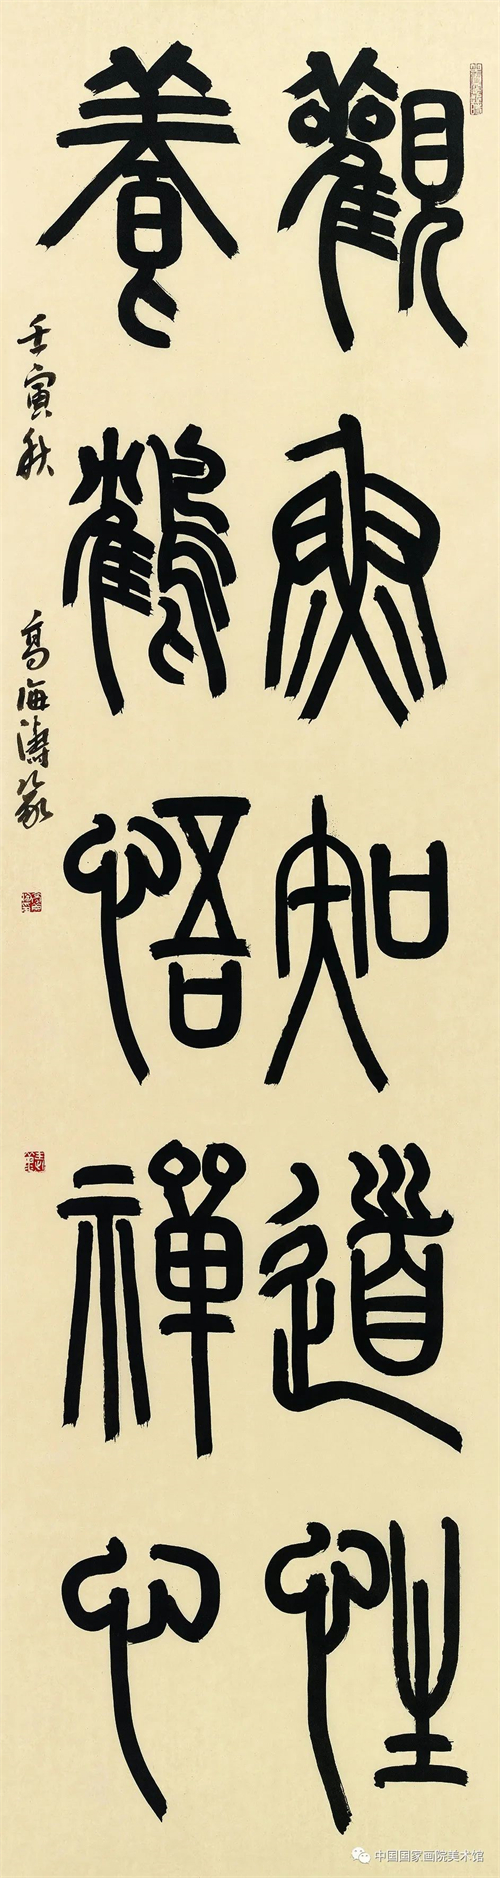 觀魚知道性
養鶴悟禪心
壬寅秋
高海濤篆
中国国家画院美术馆